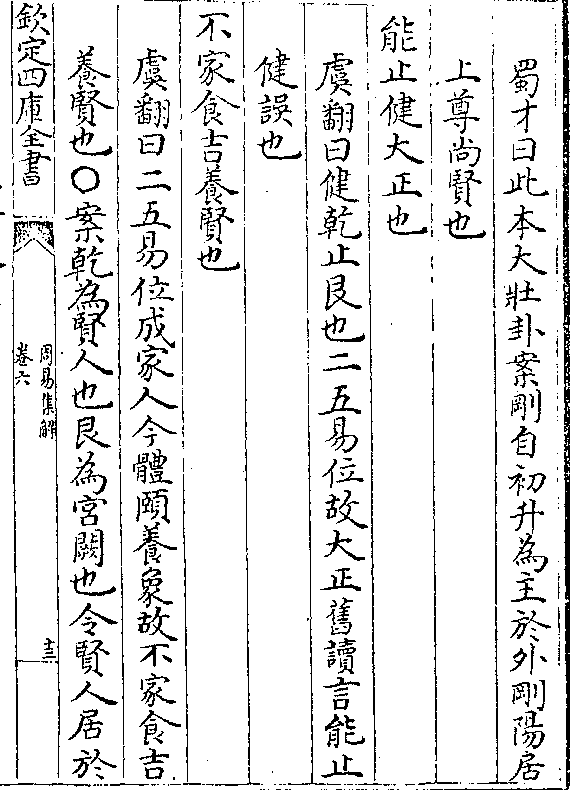 蜀才曰此本大壯卦案剛自初升為主於外剛陽居
上尊尚賢也
能止健大正也
虞翻曰健乾止艮也二五易位故大正舊讀言能止
健誤也
不家食吉養賢也
虞翻曰二五易位成家人今體頤養象故不家食吉
養賢也○案乾為賢人也艮為宮闕也令賢人居於
欽定四庫全書
周易集解
卷六
十三